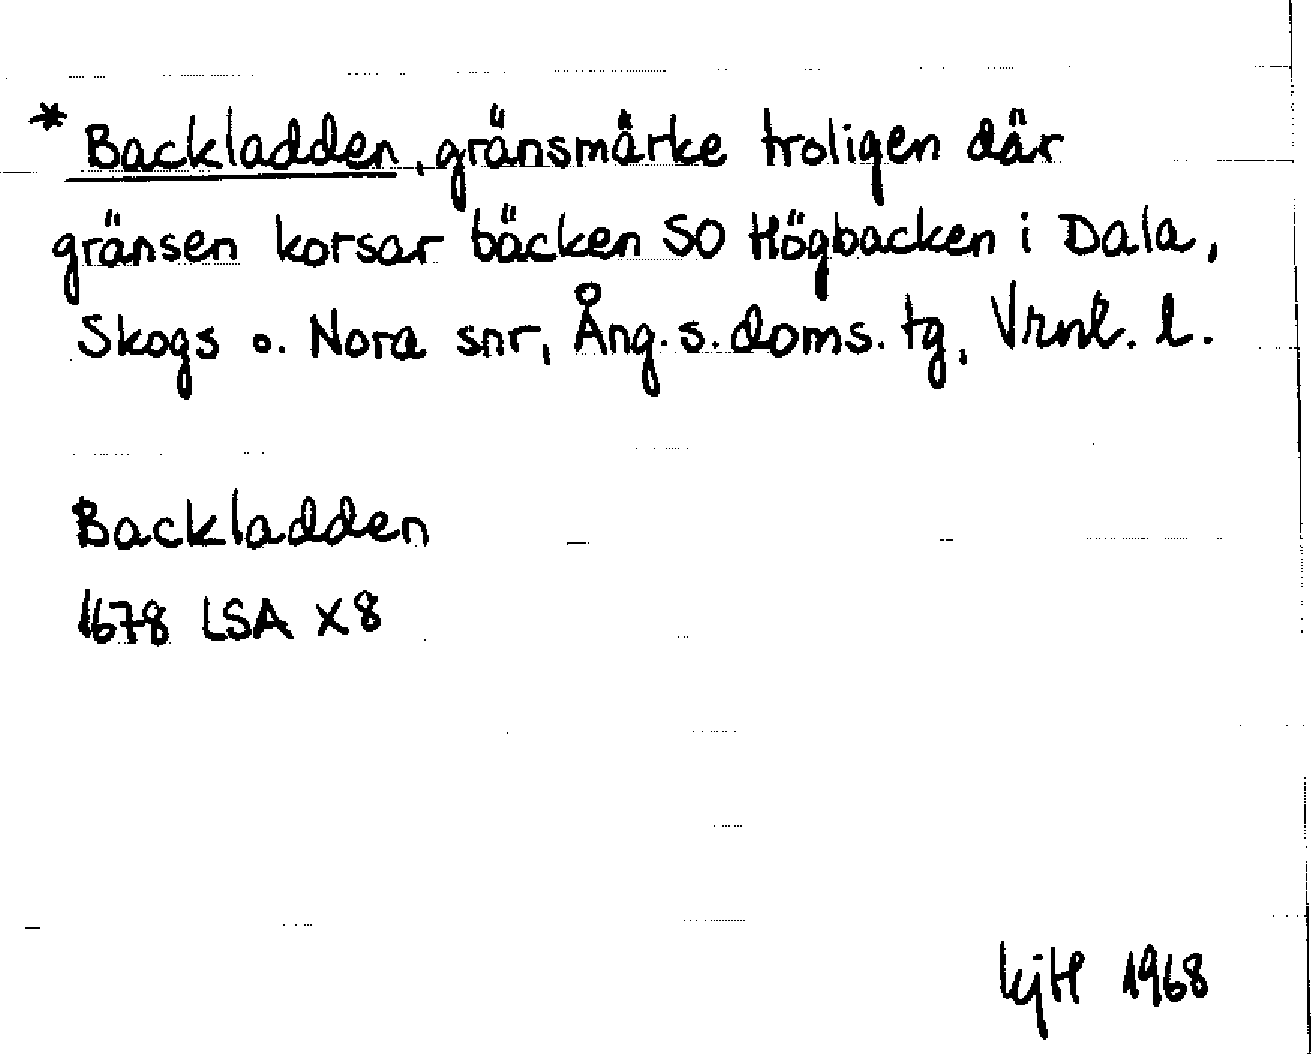 * Backladden, gränsmärke troligen där
gränsen korsar bäcken SO Högbacken i Dala,
Skogs o. Nora snr, Ång. s. doms. tg, Vrnl. l.
Backladden
1678 LSA X8
kjH 1968